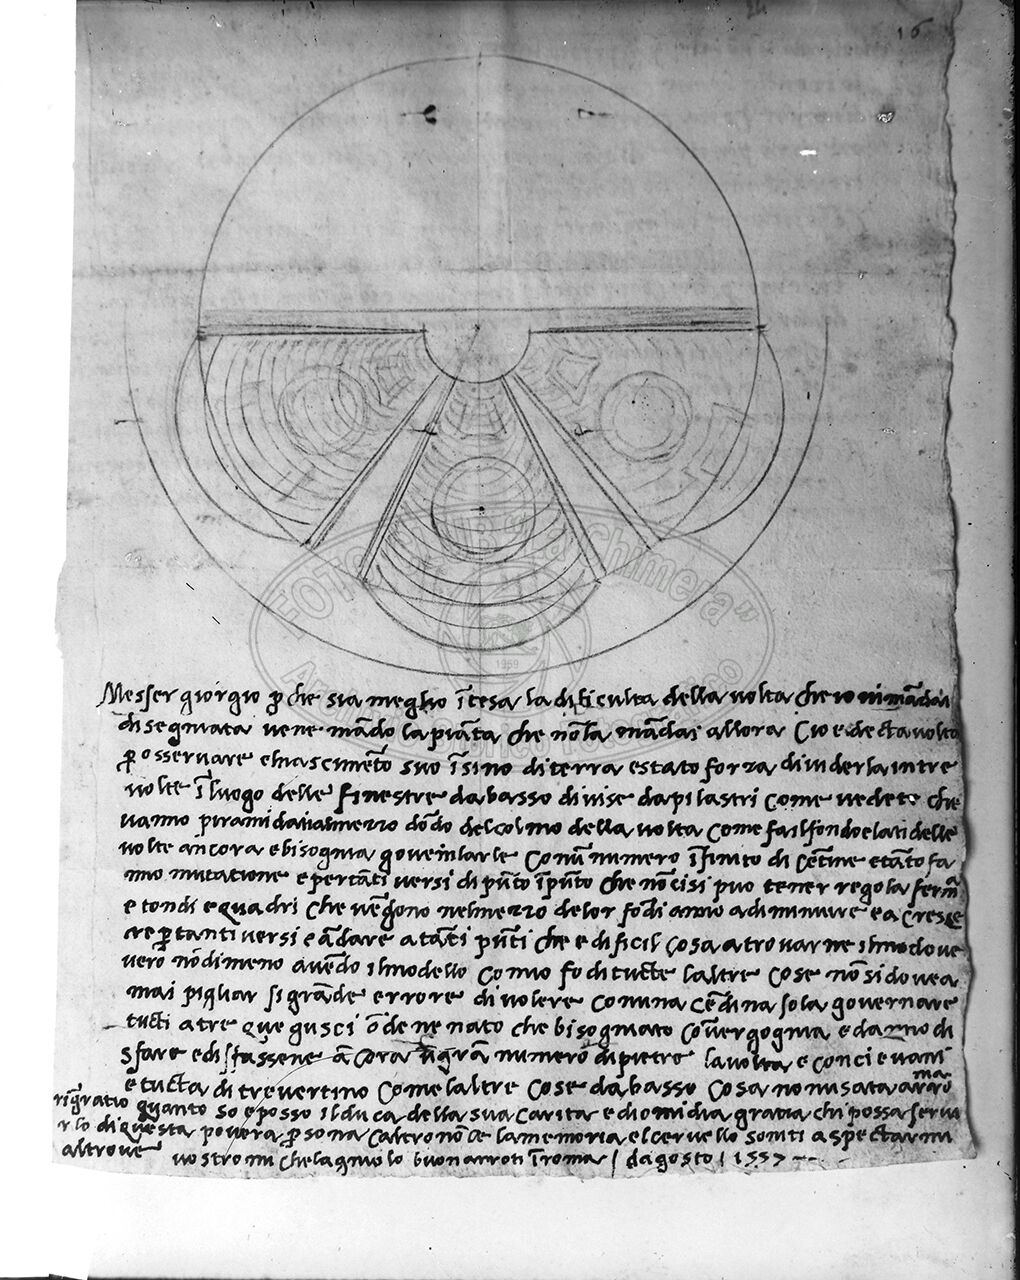 16
FOTO CLUB "La Chimera"
1959
Messer giorgio p che sia meglio ītesa la dificulta della volta che io vi mādai
disegniata vene mādo la piāta che nō la mādai allora cioe decta volta
p osservare el nascimēto suo īsino di terra e stato forza divider la in tre
volte ī luogo delle finestre da basso divise da pilastri come vedete che
vanno piramidati nel mezzo dēdo del colmo della volta come fa il fondo e lati delle
volte ancora e bisognia governiarle comū numero īfinito di cētine e tāto fa
nno mutatione e per tāti versi di pūto ī pūto che nō ci si puo tener regola ferma
e tondi e quadri che vēgono nel mezzo de lor fōdi anno a diminuire e a crescie
re p tanti versi e ādare a tāti pūti che e dificil cosa a trovarne il modo ve
vero nōdimeno avēdo il modello comio fo di tucte l altre cose nō si dovea
mai pigliar si grāde errore di volere con una cētina sola governare
tucti a tre que gusci ōde ne nato che bisogniato cō vergognia e danno di
sfare e disfassene ācora ū grā numero di pietre la volta e conci e vani
e tucta di trevertino come l altre cose da basso cosa non usata a roma
rīgratio quanto so e posso il duca della sua carita e dio mi dia gratia chi possa servi
rlo di questa povera psona c altro nō ce la memoria e l cervello son iti aspectarmi
altrove vostro michelagniolo buonarroti ī roma / d agosto / 1557